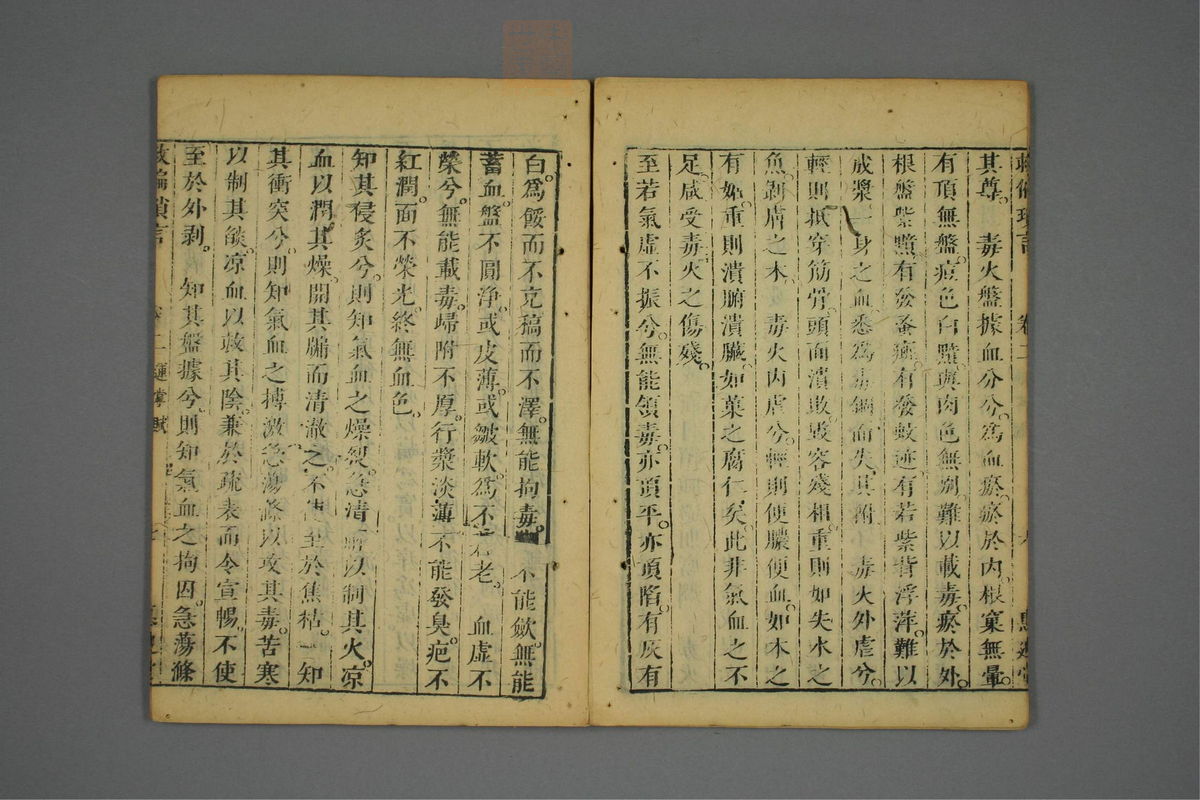 其尊。毒火盤據血分兮。爲血瘀。瘀於内。根窠無暈。
有頂無盤。痘色白黯。與肉色無別。難以載毒。瘀於外。
根盤紫黯。有發蚤斑。有發蚊迹。有若紫背浮萍。難以
成漿。一身之血。悉爲毒錮而失其附。毒火外虐兮。
輕則抵穿筋骨。頭面潰敗。毀容殘相。重則如失水之
魚。剝膚之木。毒火内虐兮。輕則便膿便血。如木之
有蛀。重則潰腑潰臟。如菓之腐仁矣。此非氣血之不
足。咸受毒火之傷殘。
至若氣虛不振兮。無能領毒。亦頂平。亦頂陷。有灰有
白。爲餒而不克。稿而不澤。無能拘毒。不能歛。無能
蓄血。盤不圓淨。或皮薄。或皺軟。爲不老。血虛不
榮兮。無能載毒。歸附不厚。行漿淡薄。不能發臭。疤不
紅潤。面不榮光。終無血色。
知其侵炙兮。則知氣血之燥裂。急清以制其火。凉
血以潤其燥。開其牖而清澈之。不使至於焦枯。知
其衝突兮。則知氣血之搏激。急蕩滌以攻其毒。苦寒
以制其燄。凉血以救其陰。兼於疏表而令宣暢。不使
至於外剝。知其盤據兮。則知氣血之拘囚。急蕩滌
卷二運掌賦